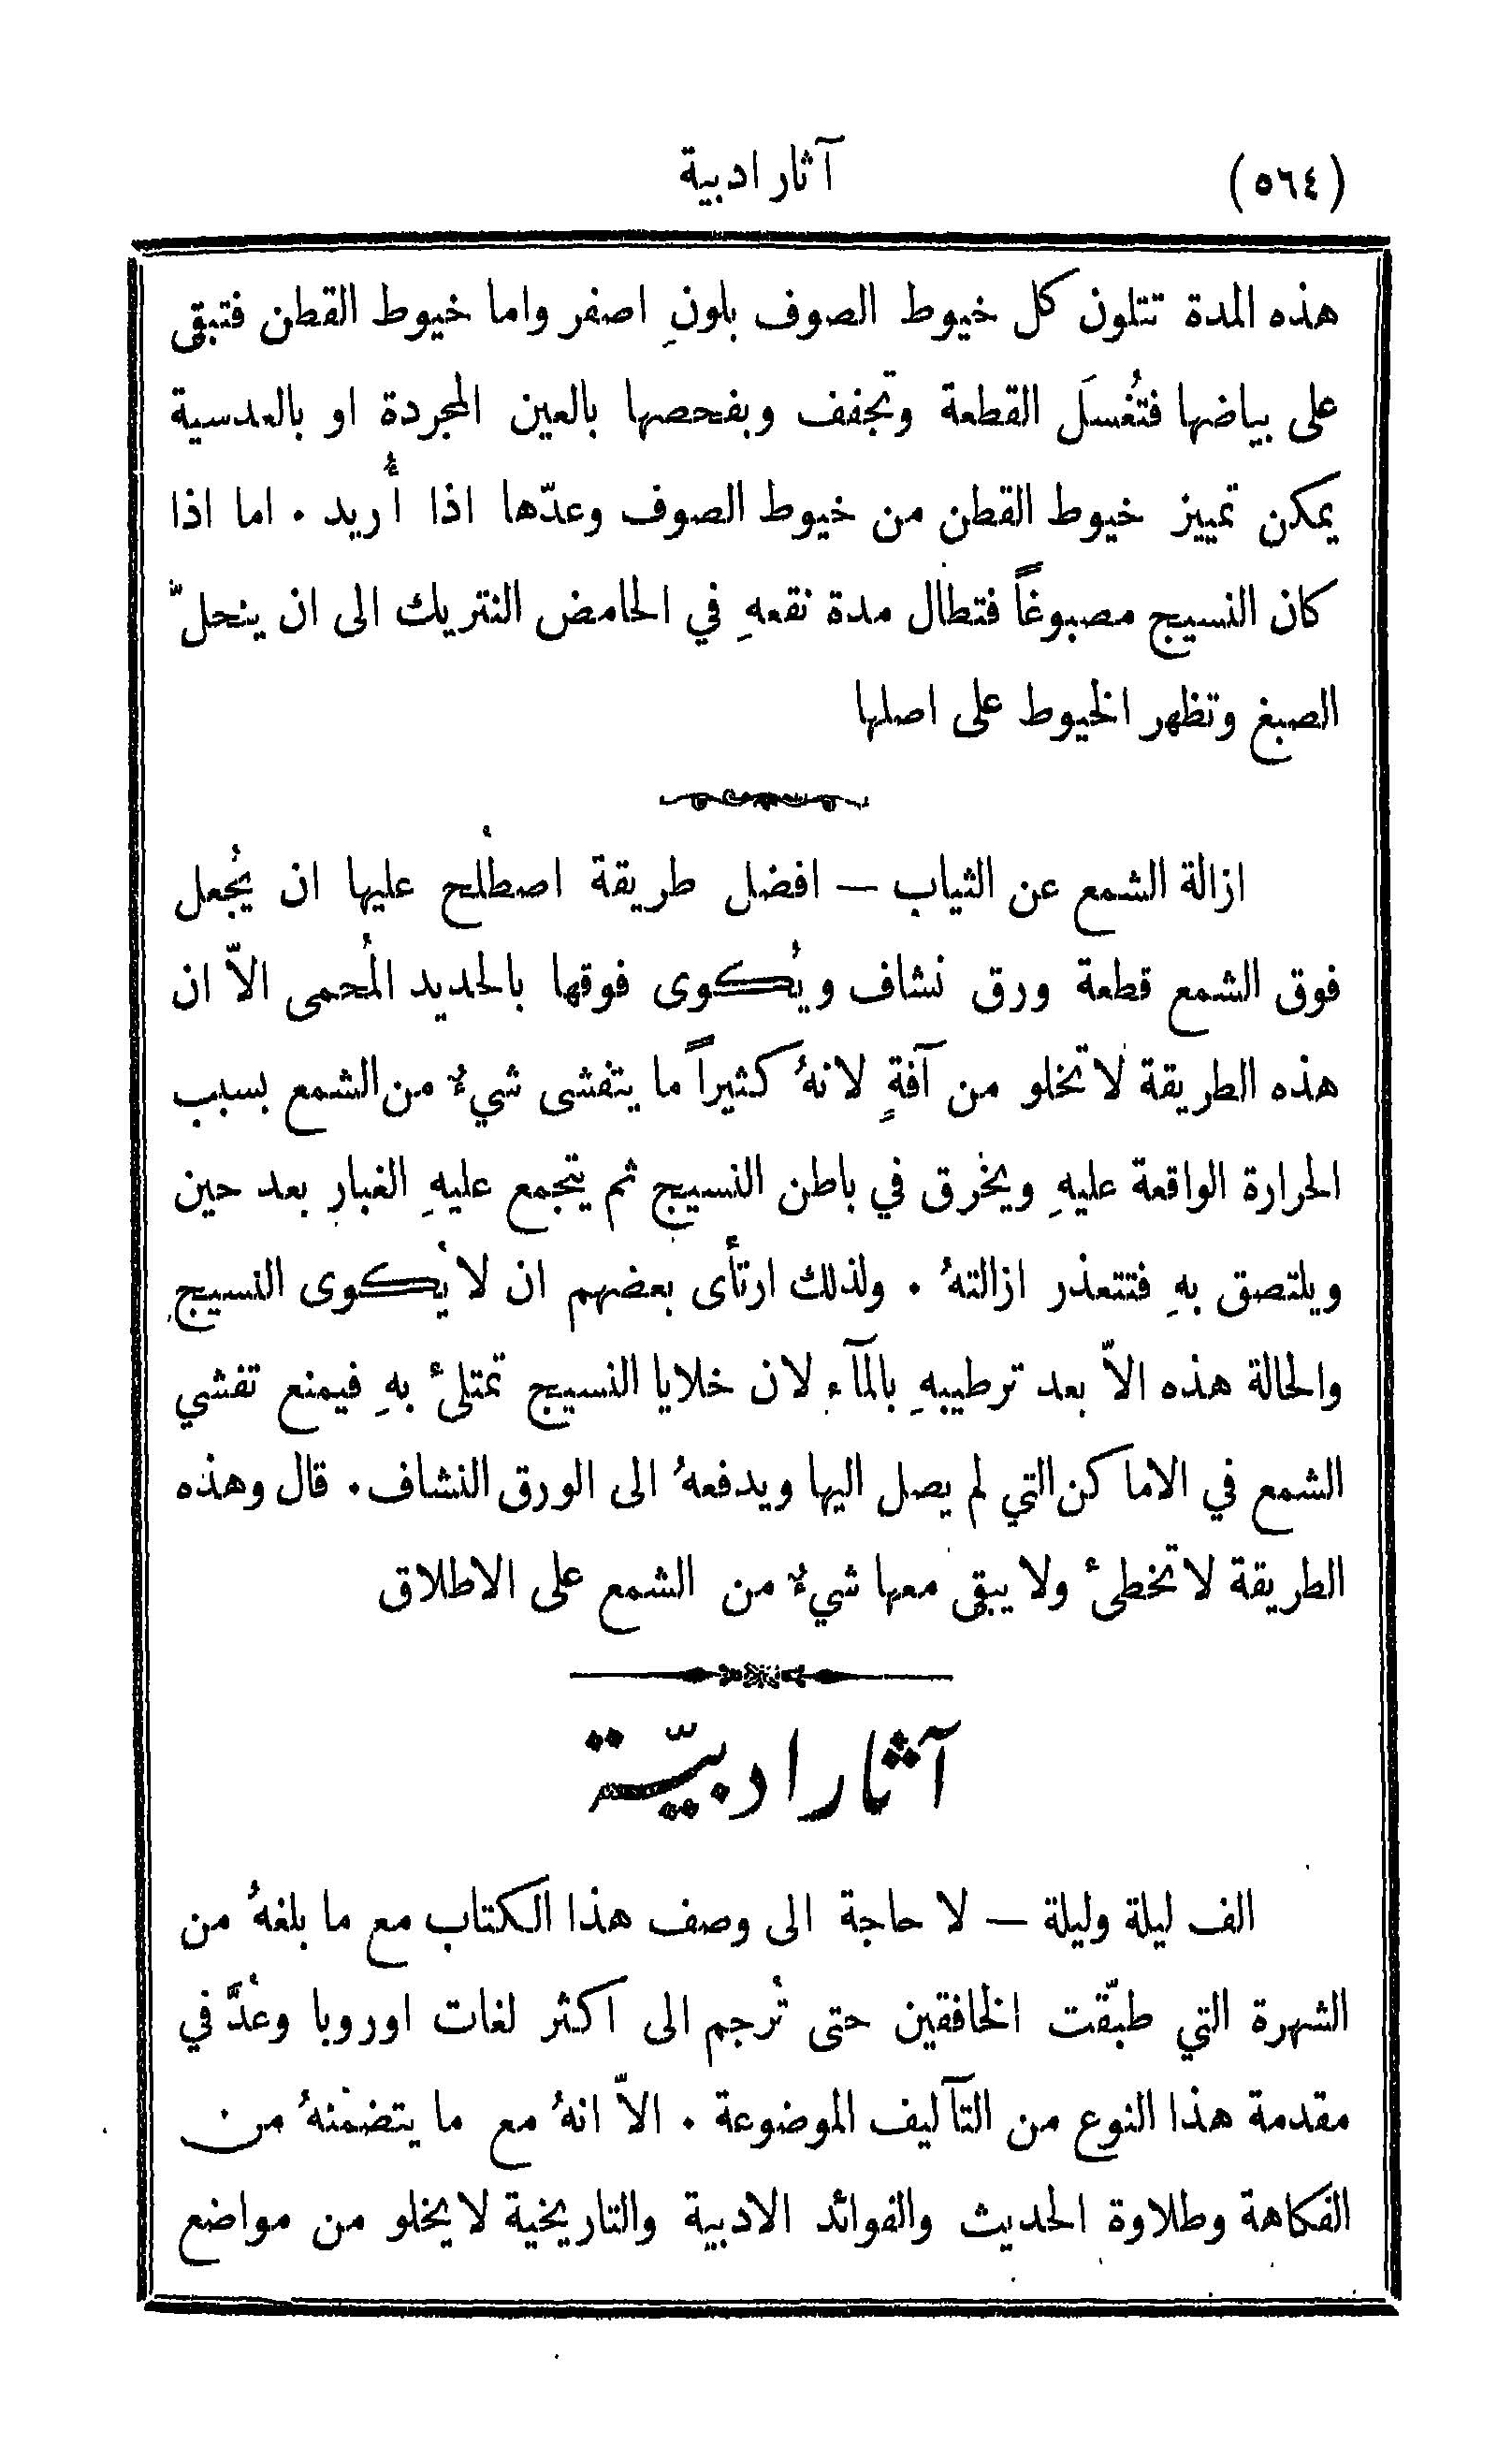 (٥٦٤) آثار ادبية
هذه المدة تتلون كل خيوط الصوف بلونِ اصفر واما خيوط القطن فتبقى
على بياضها فتُغسلَ القطعة وتجفف وبفحصها بالعين المجردة او بالعدسية
يمكن تمييز خيوط القطن من خيوط الصوف وعدّها اذا أُريد ٠ اما اذا
كان النسيج مصبوغاً فتطال مدة نقعهِ في الحامض النتريك الى ان ينحلّ
الصبغ وتظهر الخيوط على اصلها
ازالة الشمع عن الثياب — افضل طريقة اصطُلح عليها ان يُجعل
فوق الشمع قطعة ورق نشاف ويُكوى فوقها بالحديد المُحمى الاّ ان
هذه الطريقة لا تخلو من آفةٍ لانهُ كثيراً ما يتفشى شيءٌ من الشمع بسبب
الحرارة الواقعة عليهِ ويخرق في باطن النسيج ثم يتجمع عليهِ الغبار بعد حين
ويلتصق بهِ فتتعذر ازالتهُ ٠ ولذلك ارتأى بعضهم ان لا يُكوى النسيج
والحالة هذه الاّ بعد ترطيبهِ بالمآء لان خلايا النسيج تمتلئ بهِ فيمنع تفشي
الشمع في الاماكن التي لم يصل اليها ويدفعهُ الى الورق النشاف ٠ قال وهذه
الطريقة لا تخطئ ولا يبقى معها شيءٌ من الشمع على الاطلاق
آثار ادبيّة
الف ليلة وليلة — لا حاجة الى وصف هذا الكتاب مع ما بلغهُ من
الشهرة التي طبّقت الخافقين حتى تُرجم الى اكثر لغات اوروبا وعُدَّ في
مقدمة هذا النوع من التآليف الموضوعة ٠ الاّ انهُ مع ما يتضمنهُ من
الفكاهة وطلاوة الحديث والفوائد الادبية والتاريخية لا يخلو من مواضع